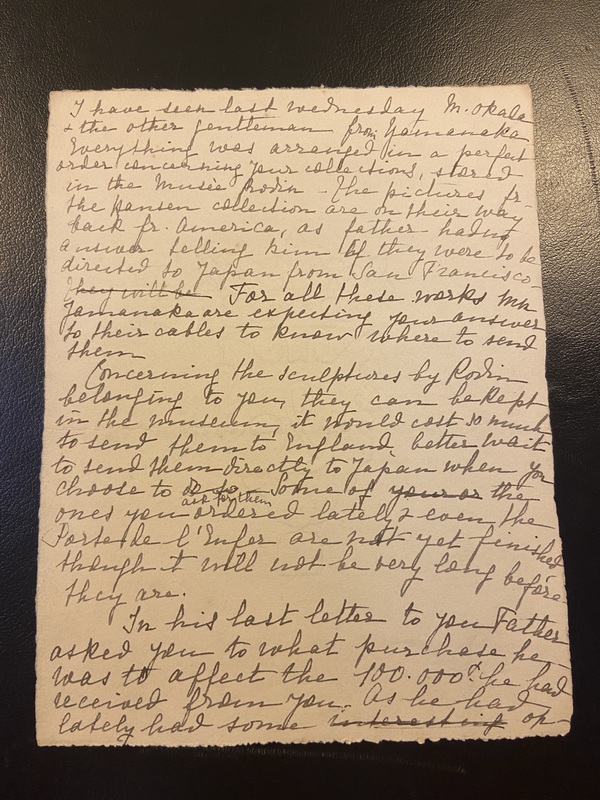 I have seen last wednesday M. Okada
& the other gentleman from Yamanaka
Everything was arranged in a perfect
order concerning your collections, stored
in the Musée Rodin – The pictures fr.
the Hansen collection are on their way
back fr. America, as father had no
answer telling him if they were to be
directed to Japan from San Francisco.
They will be For all these works Mr
Yamanaka are expecting your answer
to their cables to know where to send
them
Concerning the sculptures by Rodin
belonging to you, they can be kept
in the museum, it would cost so much
to send them to England, better wait
to send them directly to Japan when you
choose to do so ask for them Some of your or the
ones you ordered lately & even the
Porte de l'Enfer are not yet finished
though it will not be very long before
they are.
In his last letter to you Father
asked you to what purchase he
was to affect the 100.000 he had
received from you. As he had
lately had some interesting op-